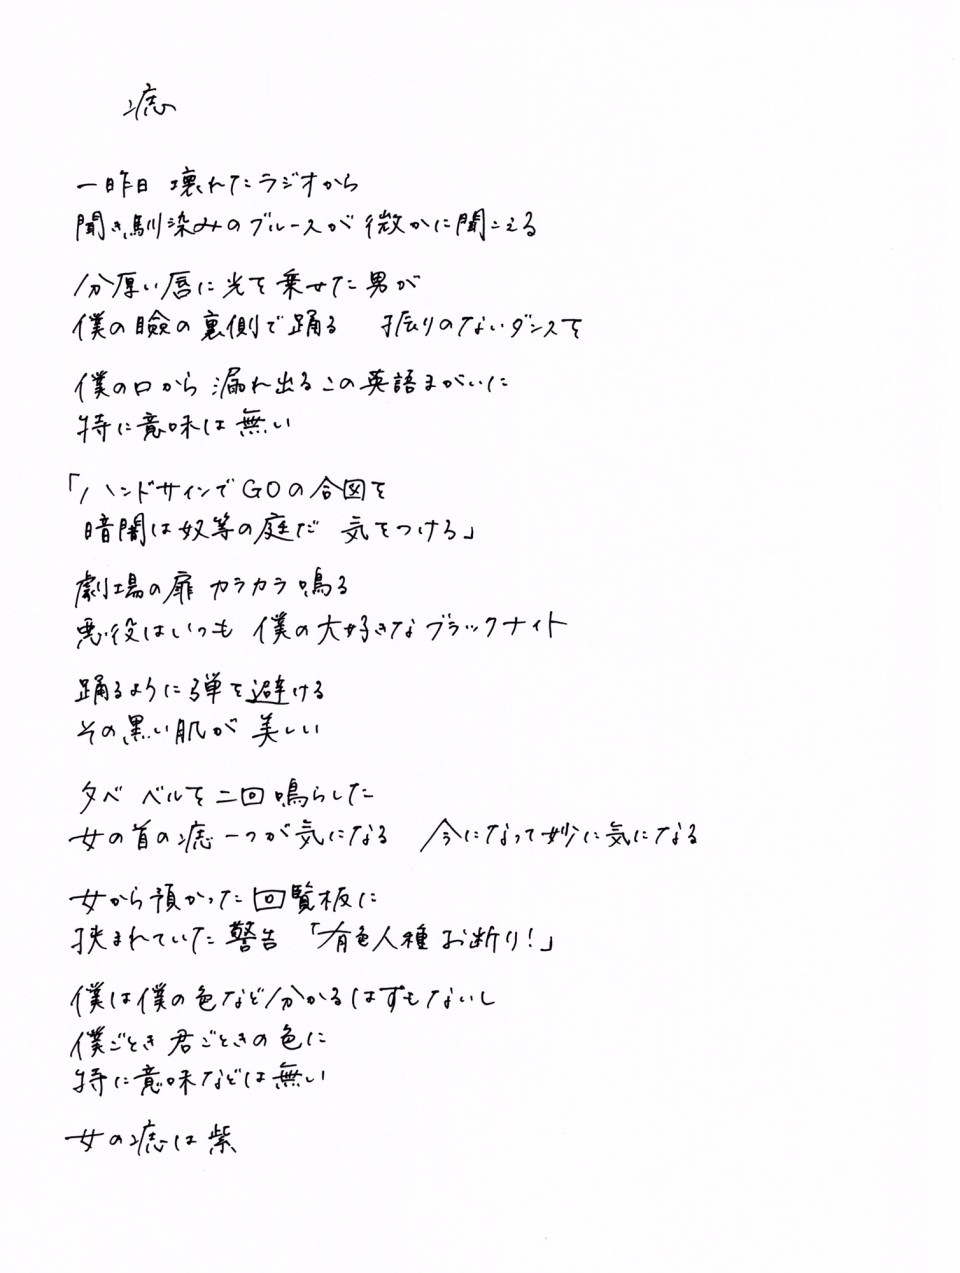 痣
一昨日 壊れたラジオから
聞き馴染みのブルースが 微かに聞こえる
分厚い唇に 光を乗せた男が
僕の瞼の裏側で踊る 振りのないダンスを
僕の口から 漏れ出るこの英語まがいに
特に意味は無い
「ハンドサインでGOの合図を
暗闇は奴等の庭だ 気をつけろ」
劇場の扉 カラカラ鳴る
悪役はいつも 僕の大好きなブラックナイト
踊るように弾を避ける
その黒い肌が 美しい
夕べ ベルを二回鳴らした
女の首の痣一つが気になる 今になって妙に気になる
女から預かった回覧板に
挟まれていた警告 「有色人種お断り!」
僕は僕の色など分かるはずもないし
僕ごとき 君ごときの色に
特に意味などは無い
女の痣は紫